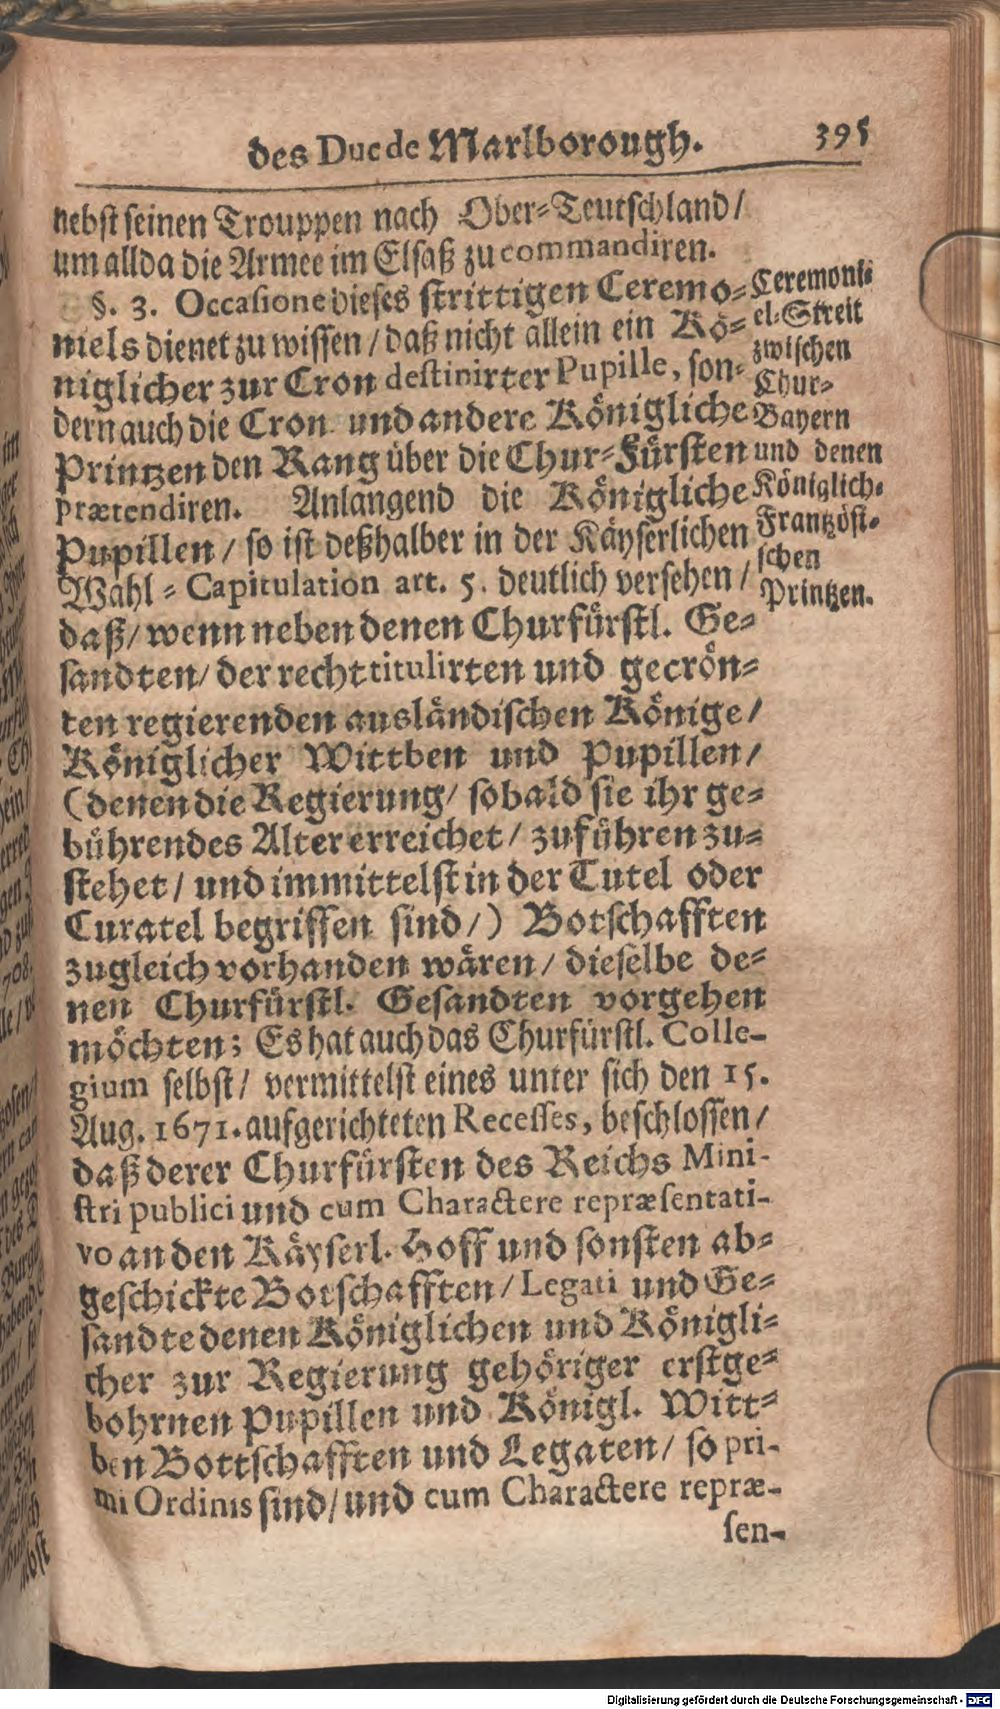 des Duc de Marlborough. 395
nebst seinen Trouppen nach Ober-Teutschland/
um allda die Armee im Elsaß zu commandiren.
§. 3. Occasione dieses strittigen Ceremo-
niels dienet zu wissen/ daß nicht allein ein Kö-
niglicher zur Cron destinirter Pupille, son-
dern auch die Cron und andere Königliche
Printzen den Rang über die Chur-Fürsten
prætendiren. Anlangend die Königliche
Pupillen/ so ist deßhalber in der Käyserlichen
Wahl-Capitulation art. 5. deutlich versehen/
daß/ wenn neben denen Churfürstl. Ge-
sandten/ der recht titulirten und gecrön-
ten regierenden ausländischen Könige/
Königlicher Wittben und Pupillen/
(denen die Regierung/ sobald sie ihr ge-
bührendes Alter erreichet/ zuführen zu-
stehet/ und immittelst in der Tutel oder
Curatel begriffen sind/) Botschafften
zugleich vorhanden wären/ dieselbe de-
nen Churfürstl. Gesandten vorgehen
möchten; Es hat auch das Churfürstl. Colle-
gium selbst/ vermittelst eines unter sich den 15.
Aug. 1671. aufgerichteten Recesses, beschlossen/
daß derer Churfürsten des Reichs Mini-
stri publici und cum Charactere repræsentati-
vo an den Käyserl. Hoff und sonsten ab-
geschickte Botschafften/ Legati und Ge-
sandte denen Königlichen und Königli-
cher zur Regierung gehöriger erstge-
bohrnen Pupillen und Königl. Witt-
ben Bottschafften und Legaten/ so pri-
mi Ordinis sind/ und cum Charactere repræ-
sen-
Ceremoni-
el-Streit
zwischen
Chur-
Bayern
und denen
Königlich-
Frantzösi-
schen
Printzen.
Digitalisierung gefördert durch die Deutsche Forschungsgemeinschaft - DFG